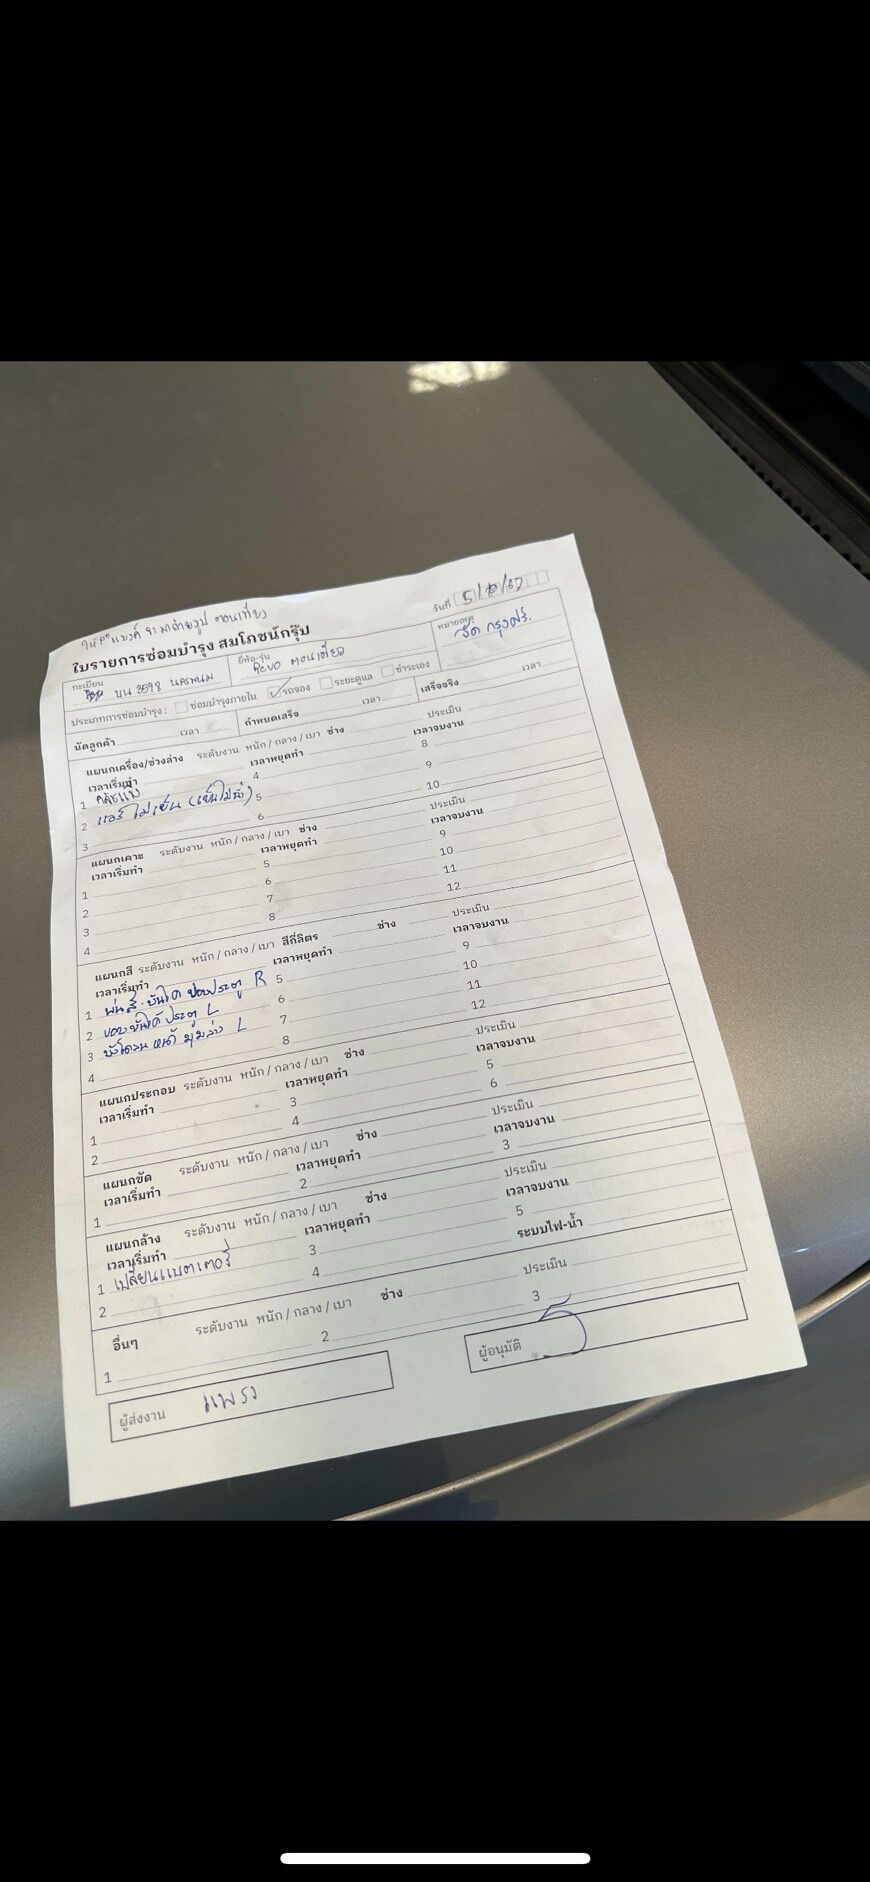 ให้ P' แบงค์ จะมาถ่ายรูป ตอนเที่ยง
ใบรายการซ่อมบำรุง สมโภชน์กรุ๊ป
วันที่ 5/ /67
ทะเบียน บน 3598 นครพนม
ยี่ห้อ-รุ่น Revo ตอนเดียว
หมายเหตุ จัด กรุงศรี.
ประเภทการซ่อมบำรุง : ซ่อมบำรุงภายใน รถจอง ระยะดูแล ชำระเอง
นัดลูกค้า เวลา กำหนดเสร็จ เวลา เสร็จจริง เวลา
แผนกเครื่อง/ช่วงล่าง ระดับงาน หนัก / กลาง / เบา ช่าง ประเมิน
เวลาเริ่มทำ เวลาหยุดทำ เวลาจบงาน
1 4 8
2 แอร์ ไม่เย็น (เย็นไม่ฉ่ำ) 5 9
3 6 10
แผนกเคาะ ระดับงาน หนัก / กลาง / เบา ช่าง ประเมิน
เวลาเริ่มทำ เวลาหยุดทำ เวลาจบงาน
1 5 9
2 6 10
3 7 11
4 8 12
แผนกสี ระดับงาน หนัก / กลาง / เบา สีกี่ลิตร ช่าง ประเมิน
เวลาเริ่มทำ เวลาหยุดทำ เวลาจบงาน
1 พ่นสี. บันได ขอบประตู R 5 9
2 ขอบบันได ประตู L 6 10
3 บังโคลน หน้า มุมล่าง L 7 11
4 8 12
แผนกประกอบ ระดับงาน หนัก / กลาง / เบา ช่าง ประเมิน
เวลาเริ่มทำ เวลาหยุดทำ เวลาจบงาน
1 3 5
2 4 6
แผนกขัด ระดับงาน หนัก / กลาง / เบา ช่าง ประเมิน
เวลาเริ่มทำ เวลาหยุดทำ เวลาจบงาน
1 2 3
แผนกล้าง ระดับงาน หนัก / กลาง / เบา ช่าง ประเมิน
เวลาเริ่มทำ เวลาหยุดทำ เวลาจบงาน
1 เปลี่ยนแบตเตอรี่ 3 5
2 4 ระบบไฟ-น้ำ
อื่นๆ ระดับงาน หนัก / กลาง / เบา ช่าง ประเมิน
1 2 3
ผู้ส่งงาน แพรว
ผู้อนุมัติ